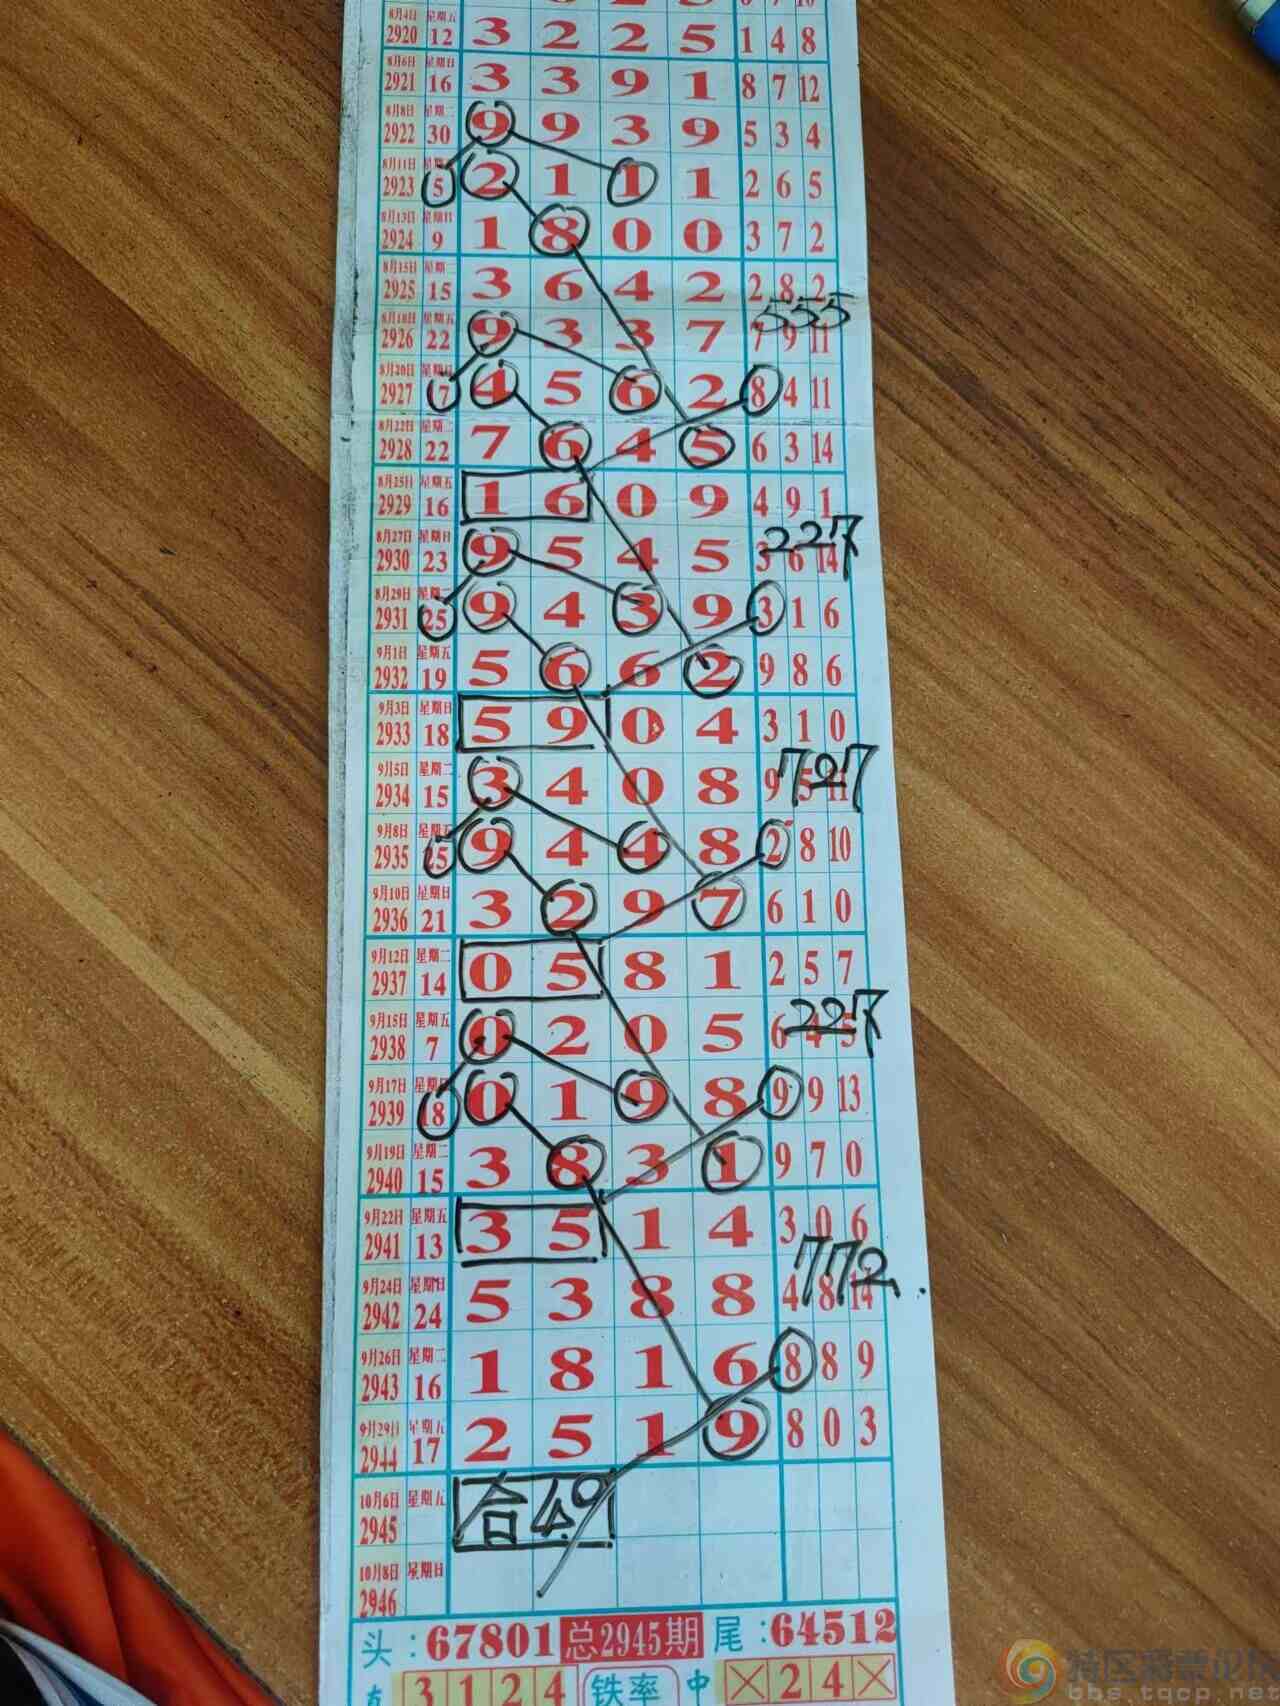 8月4日 星期五 2920 12 3 2 2 5 1 4 8
8月6日 星期日 2921 16 3 3 9 1 8 7 12
8月8日 星期二 2922 30 9 9 3 9 5 3 4
8月11日 星期 2923 5 2 1 1 1 2 6 5
8月13日 星期日 2924 9 1 8 0 0 3 7 2
8月15日 星期二 2925 15 3 6 4 2 2 8 2
555
8月18日 星期五 2926 22 9 3 3 7 7 9 11
8月20日 星期日 2927 17 4 5 6 2 8 4 11
8月22日 星期二 2928 22 7 6 4 5 6 3 14
8月25日 星期五 2929 16 1 6 0 9 4 9 1
227
8月27日 星期日 2930 23 9 5 4 5 3 6 14
8月29日 星期二 2931 25 9 4 3 9 3 1 6
9月1日 星期五 2932 19 5 6 6 2 9 8 6
9月3日 星期日 2933 18 5 9 0 4 3 1 0
727
9月5日 星期二 2934 15 3 4 0 8 9 5 11
9月8日 星期五 2935 25 9 4 4 8 2 8 10
9月10日 星期日 2936 21 3 2 9 7 6 1 0
9月12日 星期二 2937 14 0 5 8 1 2 5 7
227
9月15日 星期五 2938 7 0 2 0 5 6 4 5
9月17日 星期日 2939 18 0 1 9 8 9 9 13
9月19日 星期二 2940 15 3 8 3 1 9 7 0
9月22日 星期五 2941 13 3 5 1 4 3 0 6
772
9月24日 星期日 2942 24 5 3 8 8 4 8 14
9月26日 星期二 2943 16 1 8 1 6 8 8 9
9月29日 星期五 2944 17 2 5 1 9 8 0 3
10月6日 星期五 2945 合49
10月8日 星期日 2946
头:67801 总2945期 尾:64512
3 1 2 4 铁率 中 ×24×
bbs.tqcp.net